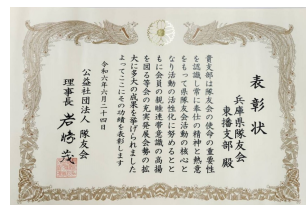 表彰状
兵庫県隊友会
東播支部 殿
貴支部は隊友会の使命の重要性
を認識し常に奉仕の精神と熱意
をもって県隊友会活動の核心と
なり活動の活性化に努めるとと
もに会員の親睦連帯意識の高揚
を図る等会の充実発展会勢の拡
大に多大の成果を挙げられました
よってここにその功績を表彰します
令和六年六月二十四日
公益社団法人 隊友会
理事長 岩﨑茂